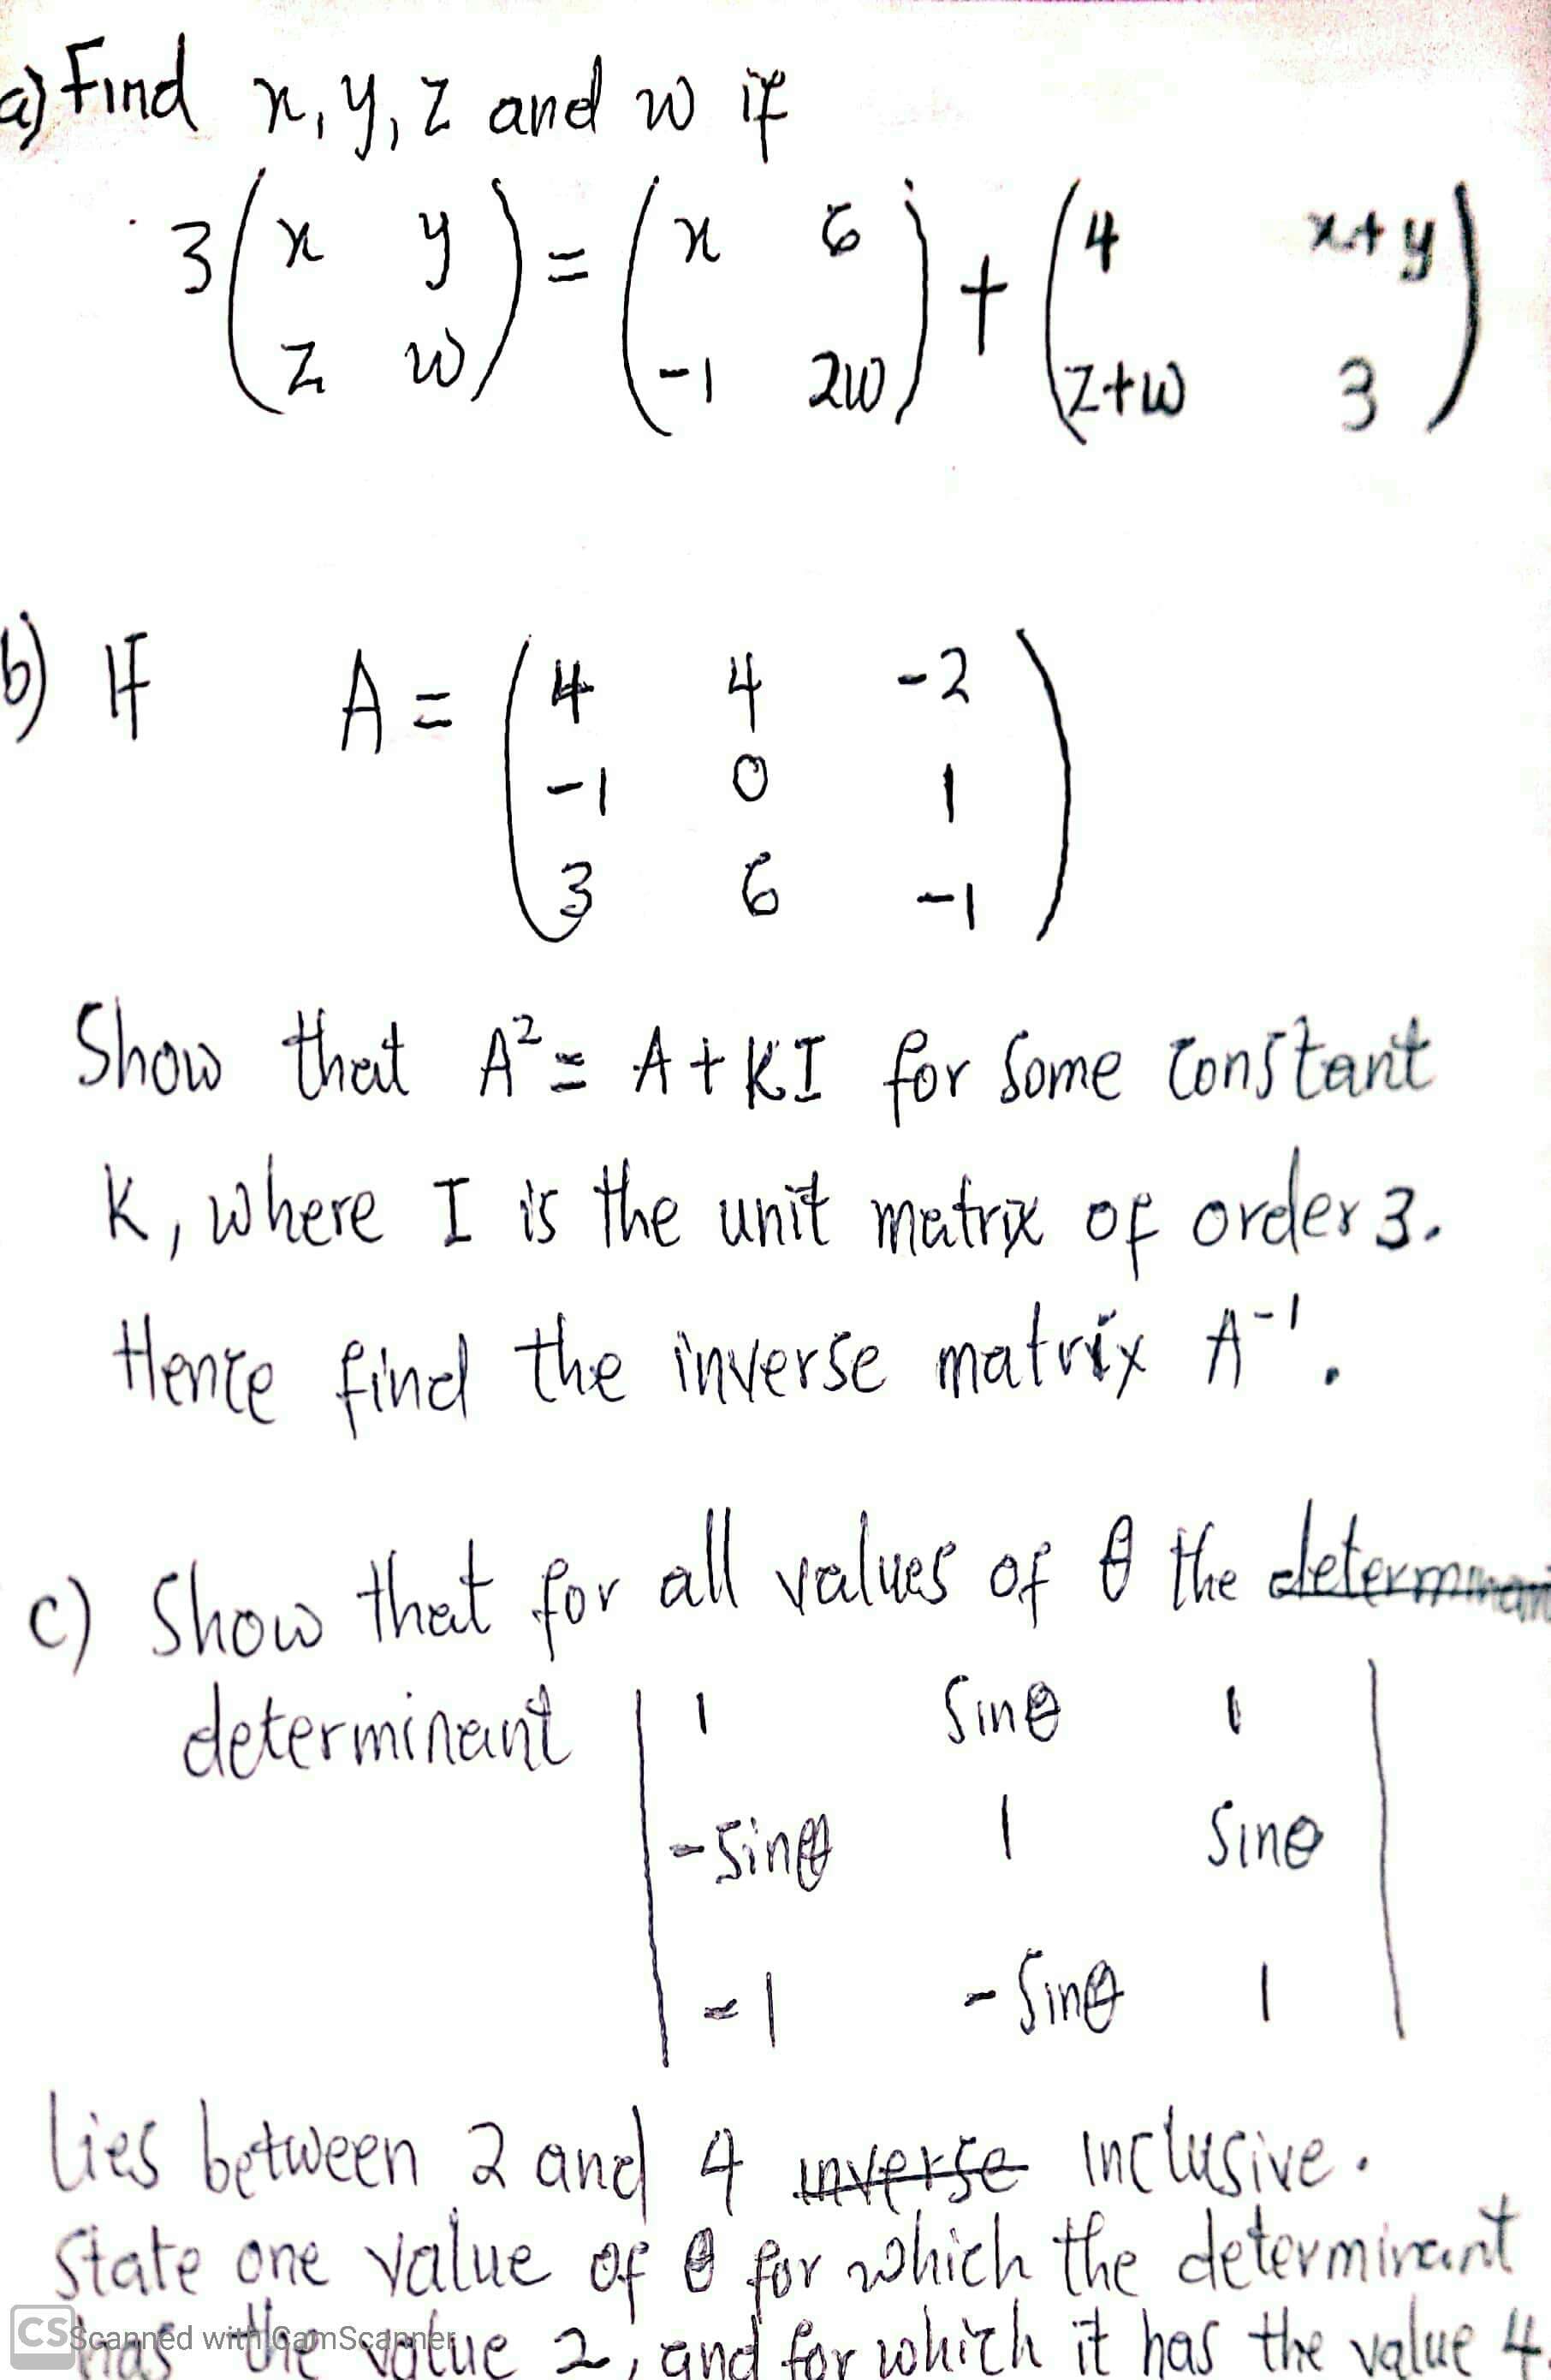 a) Find x, y, z and w if
3 ( x y ) = ( x 6 ) + ( 4 x+y )
( z w ) ( -1 2w ) ( z+w 3 )
b) If A = ( 4 4 -2 )
( -1 0 1 )
( 3 6 -1 )
Show that A² = A + KI for some constant
K, where I is the unit matrix of order 3.
Hence find the inverse matrix A⁻¹.
c) Show that for all values of θ the
determinant | 1 Sinθ 1 |
| -Sinθ 1 Sinθ |
| -1 -Sinθ 1 |
lies between 2 and 4 inverse inclusive.
State one value of θ for which the determinant
has the value 2, and for which it has the value 4.
CS Scanned with CamScanner